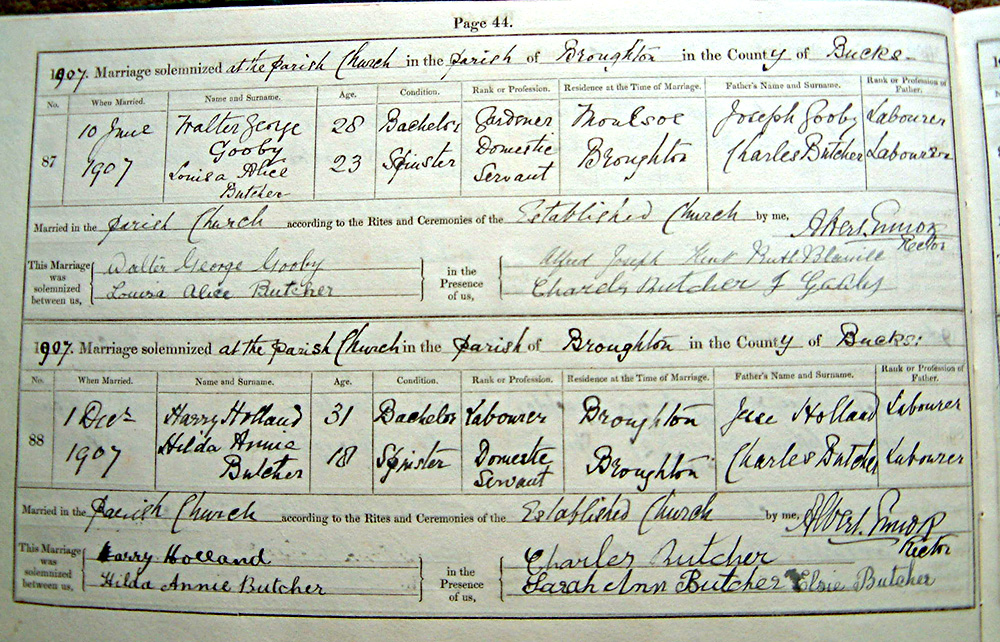 Page 44.
1907. Marriage solemnized at the Parish Church in the Parish of Broughton in the County of Bucks
No. When Married. Name and Surname. Age. Condition. Rank or Profession. Residence at the Time of Marriage. Father's Name and Surname. Rank or Profession of Father.
87 10 June 1907 Walter George Gooby 28 Bachelor Gardener Moulsoe Joseph Gooby Labourer
Louisa Alice Butcher 23 Spinster Domestic Servant Broughton Charles Butcher Labourer
Married in the Parish Church according to the Rites and Ceremonies of the Established Church by me, Albert
Rector
This Marriage was solemnized between us, Walter George Gooby
Louisa Alice Butcher
in the Presence of us, Alfred Joseph Ruth
Charles Butcher J
1907. Marriage solemnized at the Parish Church in the Parish of Broughton in the County of Bucks:
No. When Married. Name and Surname. Age. Condition. Rank or Profession. Residence at the Time of Marriage. Father's Name and Surname. Rank or Profession of Father.
88 1 Decr 1907 Harry Holland 31 Bachelor Labourer Broughton Jesse Holland Labourer
Hilda Annie Butcher 18 Spinster Domestic Servant Broughton Charles Butcher Labourer
Married in the Parish Church according to the Rites and Ceremonies of the Established Church by me, Albert
Rector
This Marriage was solemnized between us, Harry Holland
Hilda Annie Butcher
in the Presence of us, Charles Butcher
Sarah Ann Butcher Elsie Butcher